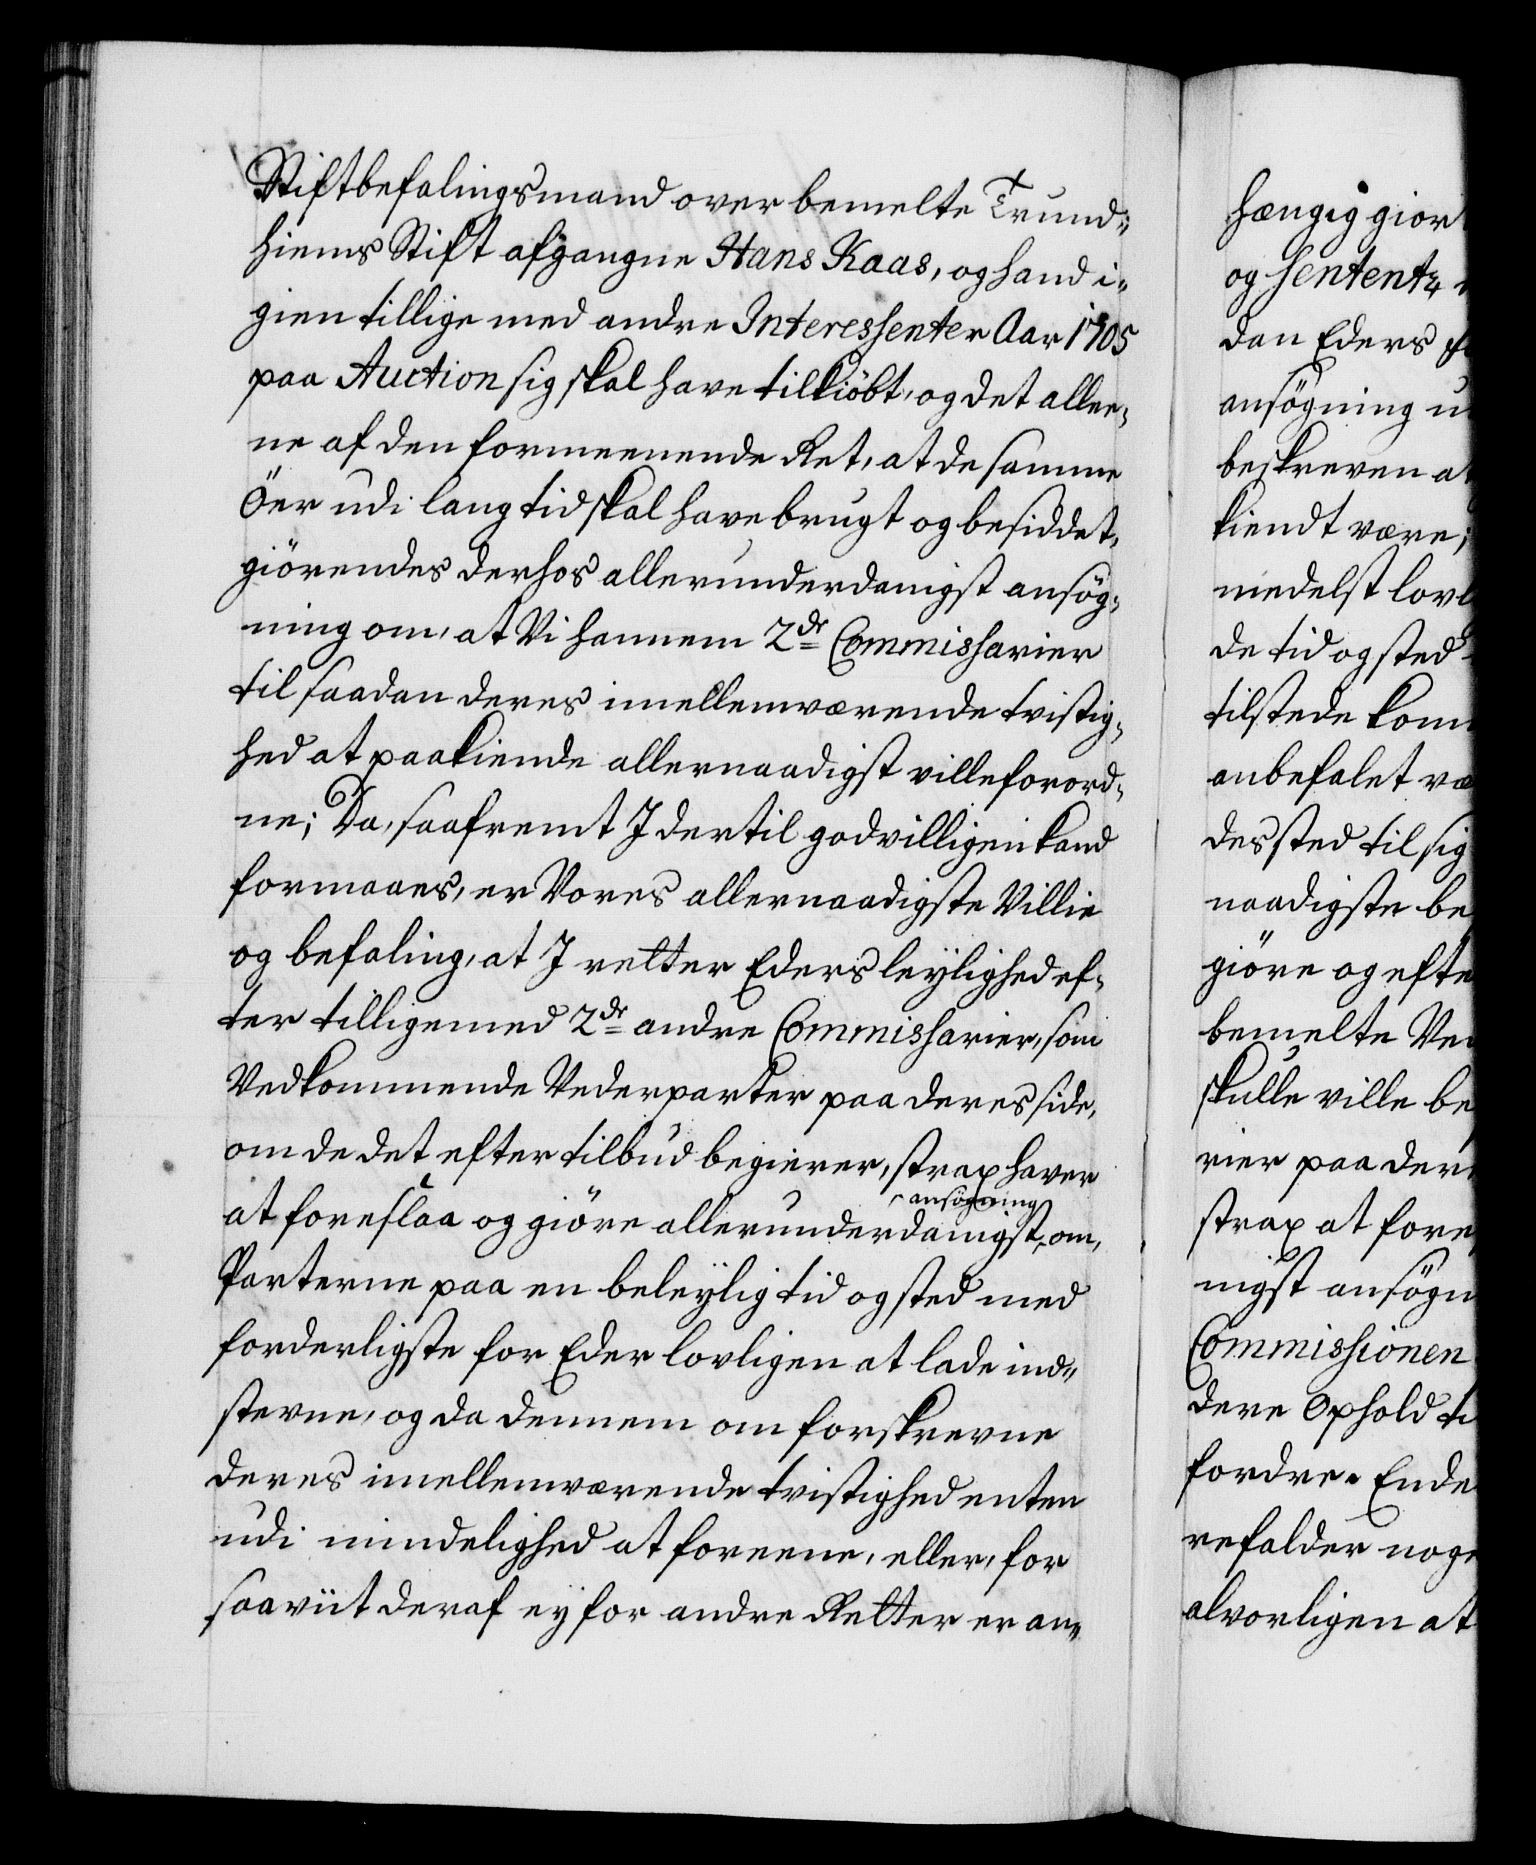 Stiftbefalingsmand over bemelte Trund-
hiems Stift afgangne Hans Kaas, og hand i-
gien tillige med andre Interessenter Aar 1705
paa Auction sig skal have tilkiöbt, og det allee-
ne af den formeenende Ret, at de samme
Öer udi lang tid skal have brugt og besiddet,
giörendes derhos allerunderdanigst ansög-
ning om, at Vi hannem 2de Commissarier
til saadan deres imellemværende tvistig-
hed at paakiende allernaadigst ville forord-
ne; Da, saafremt I dertil godvilligen kand
formaaes, er Vores allernaadigste Villie
og befaling, at I retter Eders leylighed ef-
ter tilligemed 2de andre Commissarier, som
Vedkommende Vederparter paa deres side,
om de det efter tilbud begierer, strax haver
at foreslaa og giöre allerunderdanigst ansögning om,
Parterne paa en beleylig tid og sted med
forderligste for Eder lovligen at lade ind-
stevne, og da dennem om forskrevne
deres imellemværende tvistighed enten
udi mindelighed at foreene, eller, for
saaviit deraf ey for andre Retter er an-
hængig gior
og sententz
dan Eders
ansögning u
beskreven at
kiendt være;
medelst lovl
de tid og sted
tilstede kom
anbefalet væ
des sted til sig
naadigste be
giöre og efte
bemelte Ved
skulle ville be
rier paa der
strax at fore
nigst ansögn
Commissionen
dere Ophold ti
fordre. Ende
refalder noge
alvorligen at